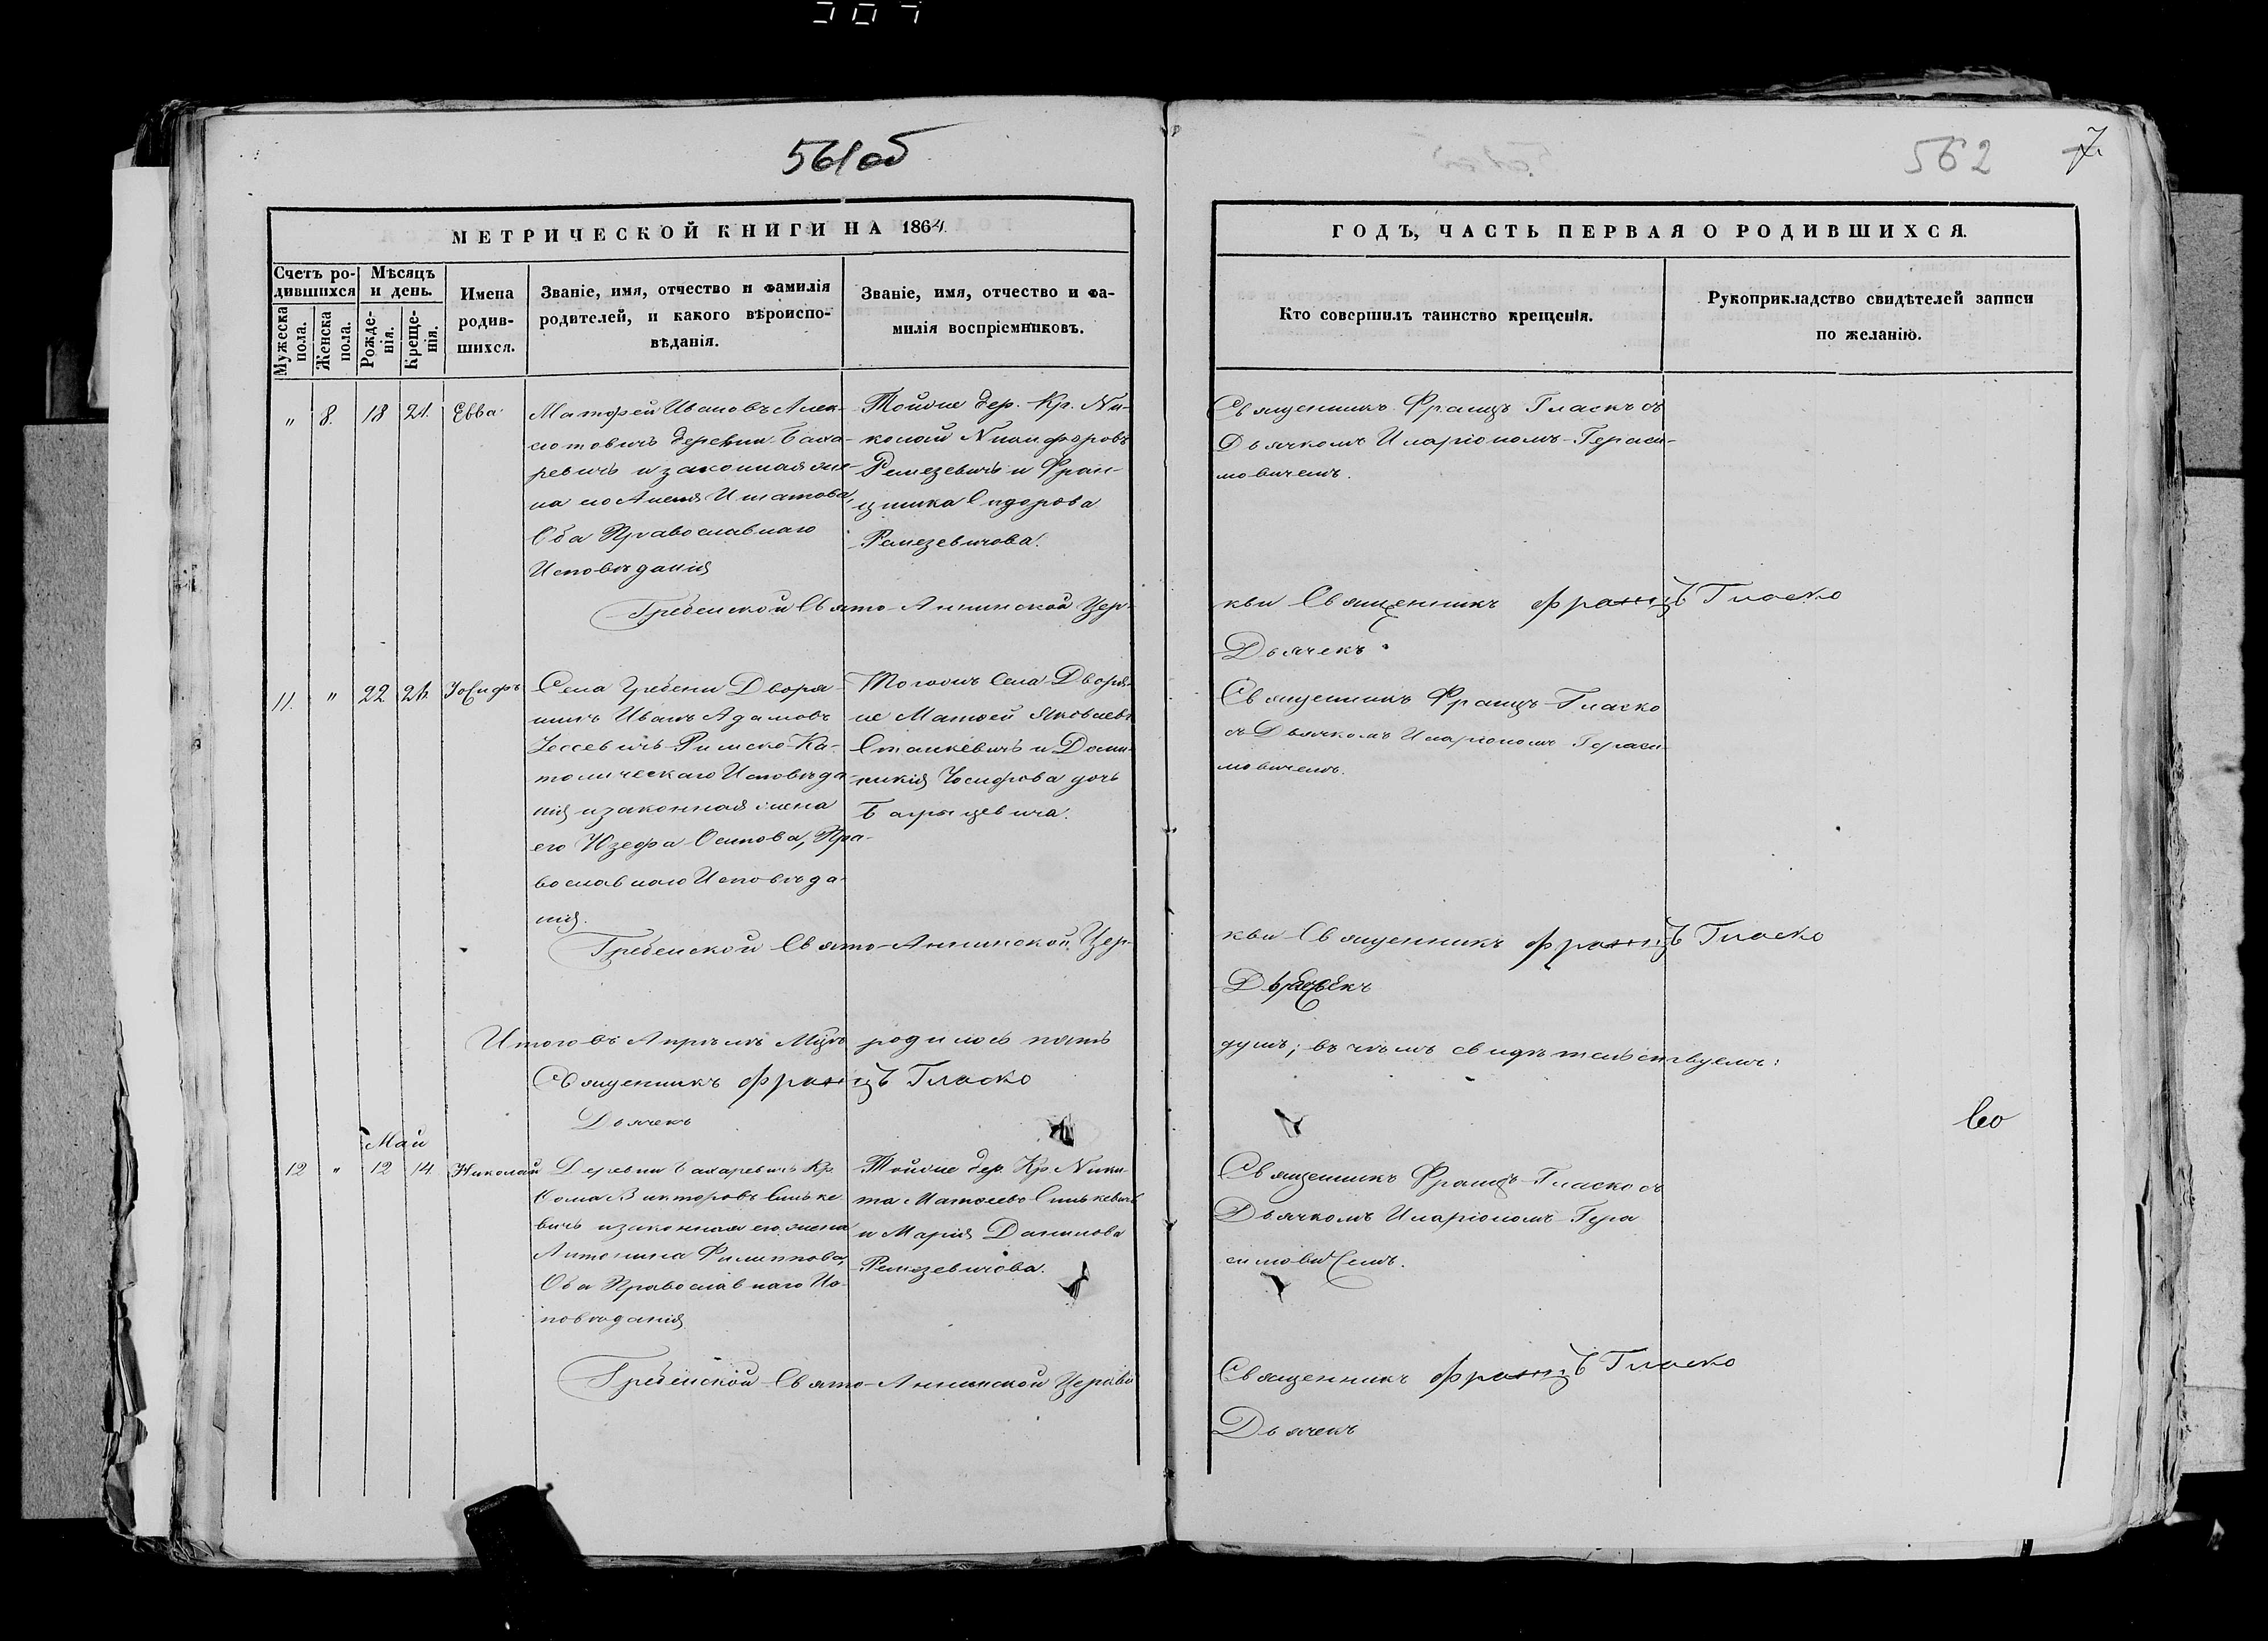 561 об
562
7
МЕТРИЧЕСКОЙ КНИГИ НА 1864
Счетъ родившихся
Мужеска пола.
Женска пола.
Мѣсяцъ и день.
Рожденія.
Крещенія.
Имена родившихся.
Званіе, имя, отчество и фамилія
родителей, и какого вѣроиспо-
вѣданія.
Званіе, имя, отчество и фа-
милія воспріемниковъ.
ГОДЪ, ЧАСТЬ ПЕРВАЯ О РОДИВШИХСЯ.
Кто совершилъ таинство крещенія.
Рукоприкладство свидѣтелей записи
по желанію.
" 8. 18 21. Евва
Матфей Ивановъ
деревни Баха-
ревичъ и законная же-
на его
Оба Православнаго
Исповѣданія
Тойже дер. Кр. Ни-
колай Никифоровъ
Ремезевичъ и Фран-
цишка Сидорова
Ремезевичова.
Священникъ Францъ Гласкъ съ
Дьячкомъ Иларіономъ Гераси-
мовичемъ.
Гребенской Свято-Аннинской Цер-
кви Священникъ Францъ Гласко
Дьячекъ
11. " 22 24. Іосифъ
Села Гребени Дворя-
нинъ Иванъ Адамовъ
Римско-Ка-
толическаго Исповѣда-
нія и законная жена
его Юзефа Осипова, Пра-
вославнаго Исповѣда-
нія.
Тогожъ Села Дворя-
не Матвей Яковлевъ
Станкевичъ и Доми-
никія Іосифова дочь
Священникъ Францъ Гласко
съ Дьячкомъ Иларіономъ Гераси-
мовичемъ.
Гребенской Свято-Аннинской Цер-
кви Священникъ Францъ Гласко
Дьячекъ
Итого въ Апрѣлѣ Мцѣ родилось пять
душъ; въ чемъ свидѣтельствуемъ:
Священникъ Францъ Гласко
Дьячекъ
Май
12 " 12 14. Николай
Деревни Бахаревичъ Кр.
Фома Викторовъ Сеньке-
вичъ и законная его жена
Антонина Филиппова,
Оба Православнаго Ис-
повѣданія
Тойже дер. Кр. Ники-
та Матвеевъ Сенькевичъ
и Марія Данилова
Ремезевичова.
Священникъ Францъ Гласко съ
Дьячкомъ Иларіономъ Гера
симовичемъ.
Гребенской Свято-Аннинской Церкви
Священникъ Францъ Гласко
Дьячекъ